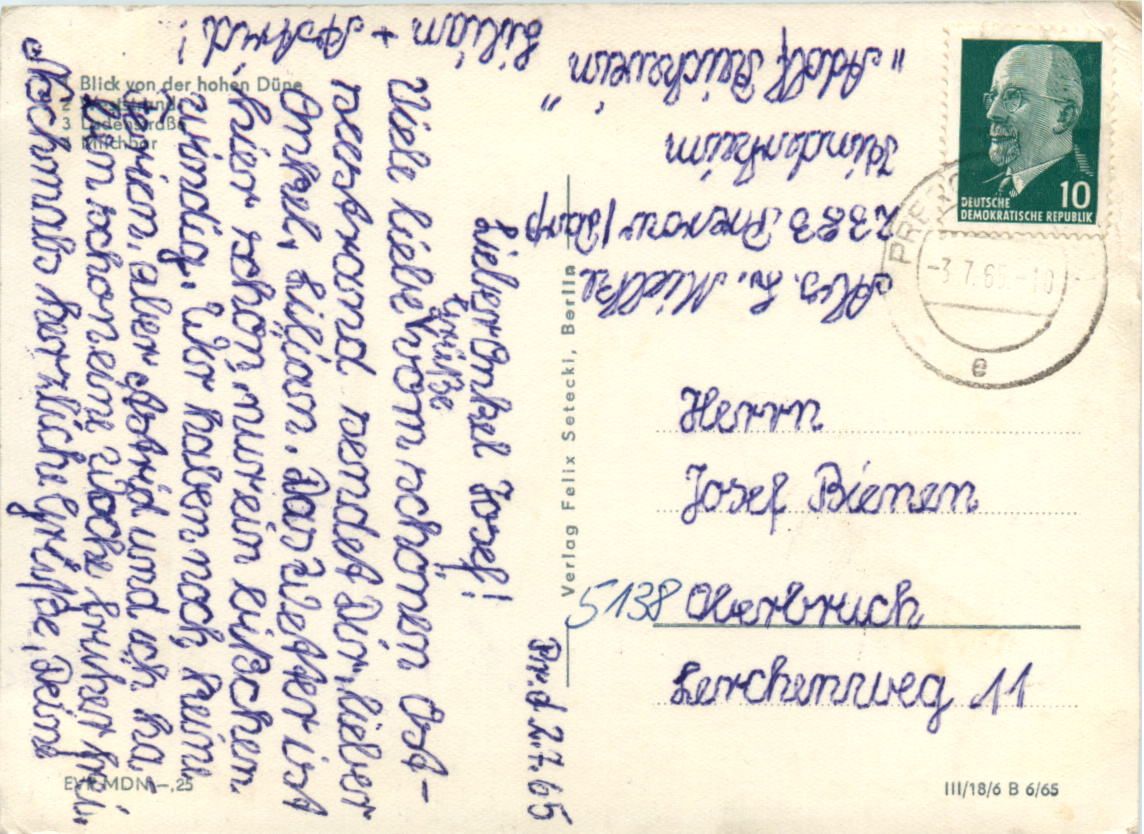 Blick von der hohen Düne
2
3 Ladenstraße
Milchbar
Pr. d. 2.7.65
Lieber Onkel Josef!
Grüße
Viele liebe vom schönen Ost-
seestrand sendet Dir, lieber
Onkel, Lilian. Das Wetter ist
hier schön, nur ein bißchen
windig. Wir haben noch keine
Ferien, aber Astrid und ich ha-
ben schon eine Woche früher
Nochmals herzliche Grüße, Deine
Lilian + Astrid!
EVP MDN -,25
Verlag Felix Setecki, Berlin
Abs. L. Mielke
2383 Prerow/Darß
Kinderheim
„Adolf Reichwein"
10
DEUTSCHE
DEMOKRATISCHE REPUBLIK
-3.7.65.-10
e
Herrn
Josef Bienen
5138 Oberbruch
Lerchenweg 11
III/18/6 B 6/65